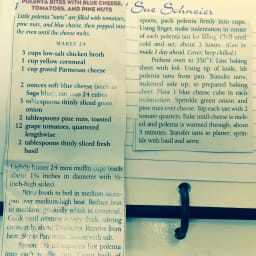 POLENTA BITES WITH BLUE CHEESE,
TOMATOES, AND PINE NUTS
Little polenta "tarts" are filled with tomatoes,
pine nuts, and blue cheese, then popped into
the oven until the cheese melts.
MAKES 24
3 cups low-salt chicken broth
1 cup yellow cornmeal
1 cup grated Parmesan cheese
2 ounces soft blue cheese (such as
Saga blue), cut into 24 cubes
3 tablespoons thinly sliced green
onion
2 tablespoons pine nuts, toasted
12 grape tomatoes, quartered
lengthwise
2 tablespoons thinly sliced fresh
basil
Lightly butter 24 mini muffin cups (each
about 1¾ inches in diameter with
inch-high sides).
Bring broth to boil in medium sauce-
pan over medium-high heat. Reduce heat
to medium; gradually whisk in cornmeal.
Cook until mixture is very thick, stirring
constantly, about 2 minutes. Remove from
heat. Stir in Parmesan. Season with salt.
Spoon 1½ tablespoons hot polenta
into each muffin cup. Using back of
Sue Schneier
spoon, pack polenta firmly into cups.
Using finger, make indentation in center
of each polenta tart for filling. Chill until
cold and set, about 3 hours. (Can be
made 1 day ahead. Cover; keep chilled.)
Preheat oven to 350°F. Line baking
sheet with foil. Using tip of knife, lift
polenta tarts from pan. Transfer tarts,
indented side up, to prepared baking
sheet. Place 1 blue cheese cube in each
indentation. Sprinkle green onion and
pine nuts over cheese. Top each tart with 2
tomato quarters. Bake until cheese is melt-
ed and polenta is warmed through, about
5 minutes. Transfer tarts to platter; sprin-
kle with basil and serve.